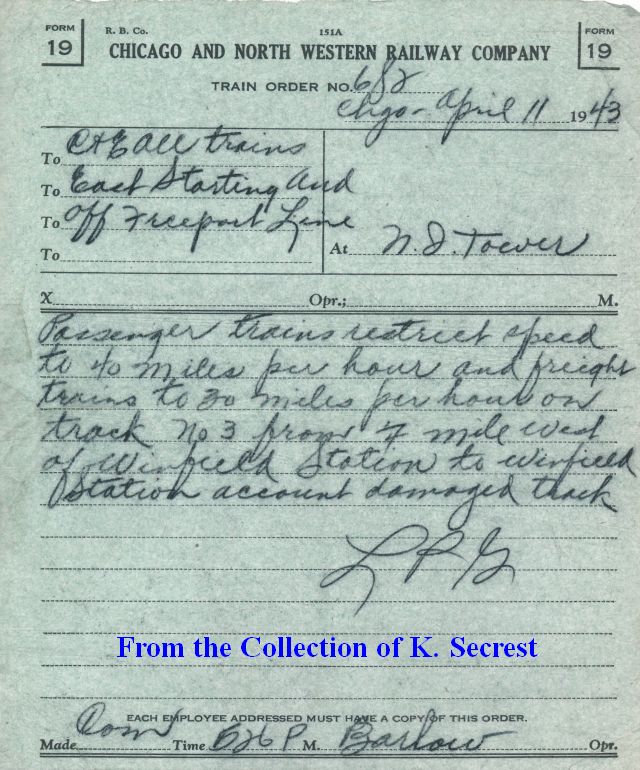 FORM 19
R. B. Co. 151A
FORM 19
CHICAGO AND NORTH WESTERN RAILWAY COMPANY
TRAIN ORDER NO. 682
Chgo - April 11 1943
To C&E All trains
To East Starting And
To Off Freeport Line
To
At N.I. Tower
X Opr.; M.
Passenger trains restrict speed
to 40 miles per hour and freight
trains to 30 miles per hour on
track No 3 from mile west
of Winfield Station to Winfield
Station account damaged track
L P G
From the Collection of K. Secrest
EACH EMPLOYEE ADDRESSED MUST HAVE A COPY OF THIS ORDER.
Made Com Time 526 P M. Barlow Opr.